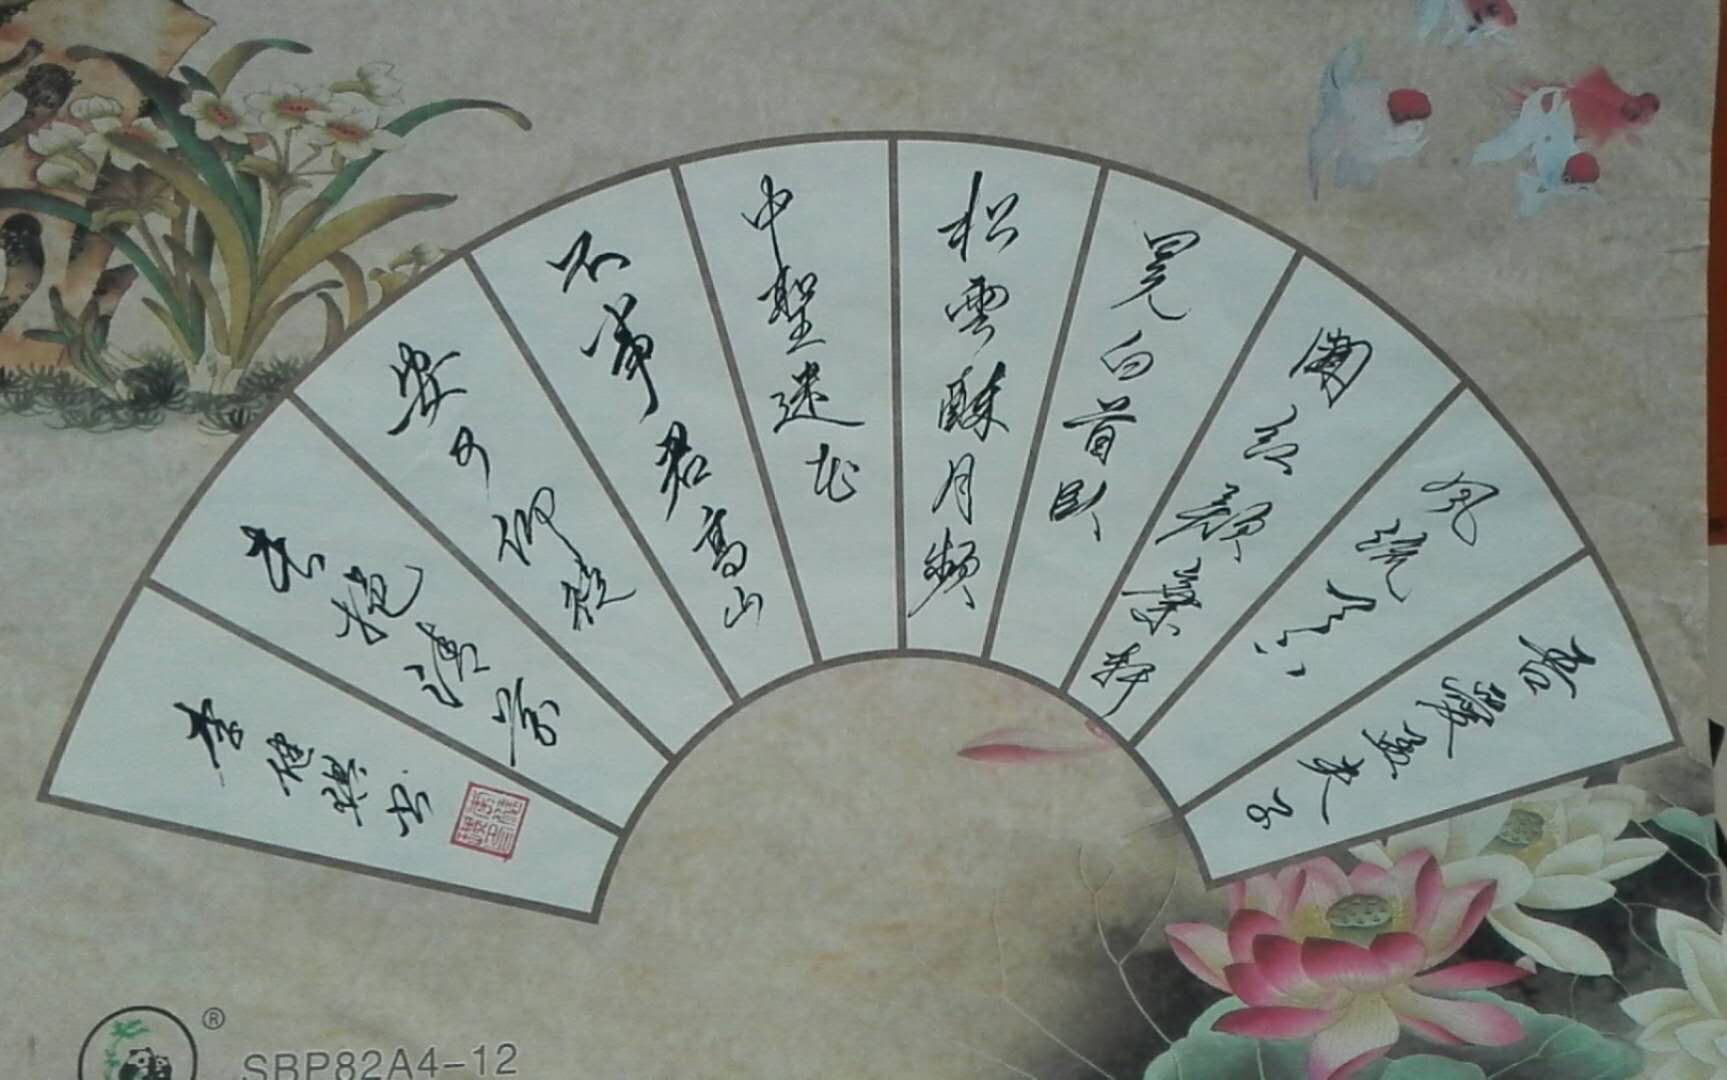 吾愛孟夫子
风流天下
闻红颜棄軒
冕白首卧
松雲醉月頻
中聖迷花
不事君高山
安可仰徒
此挹清芬
李健书
®
SBP82A4-12